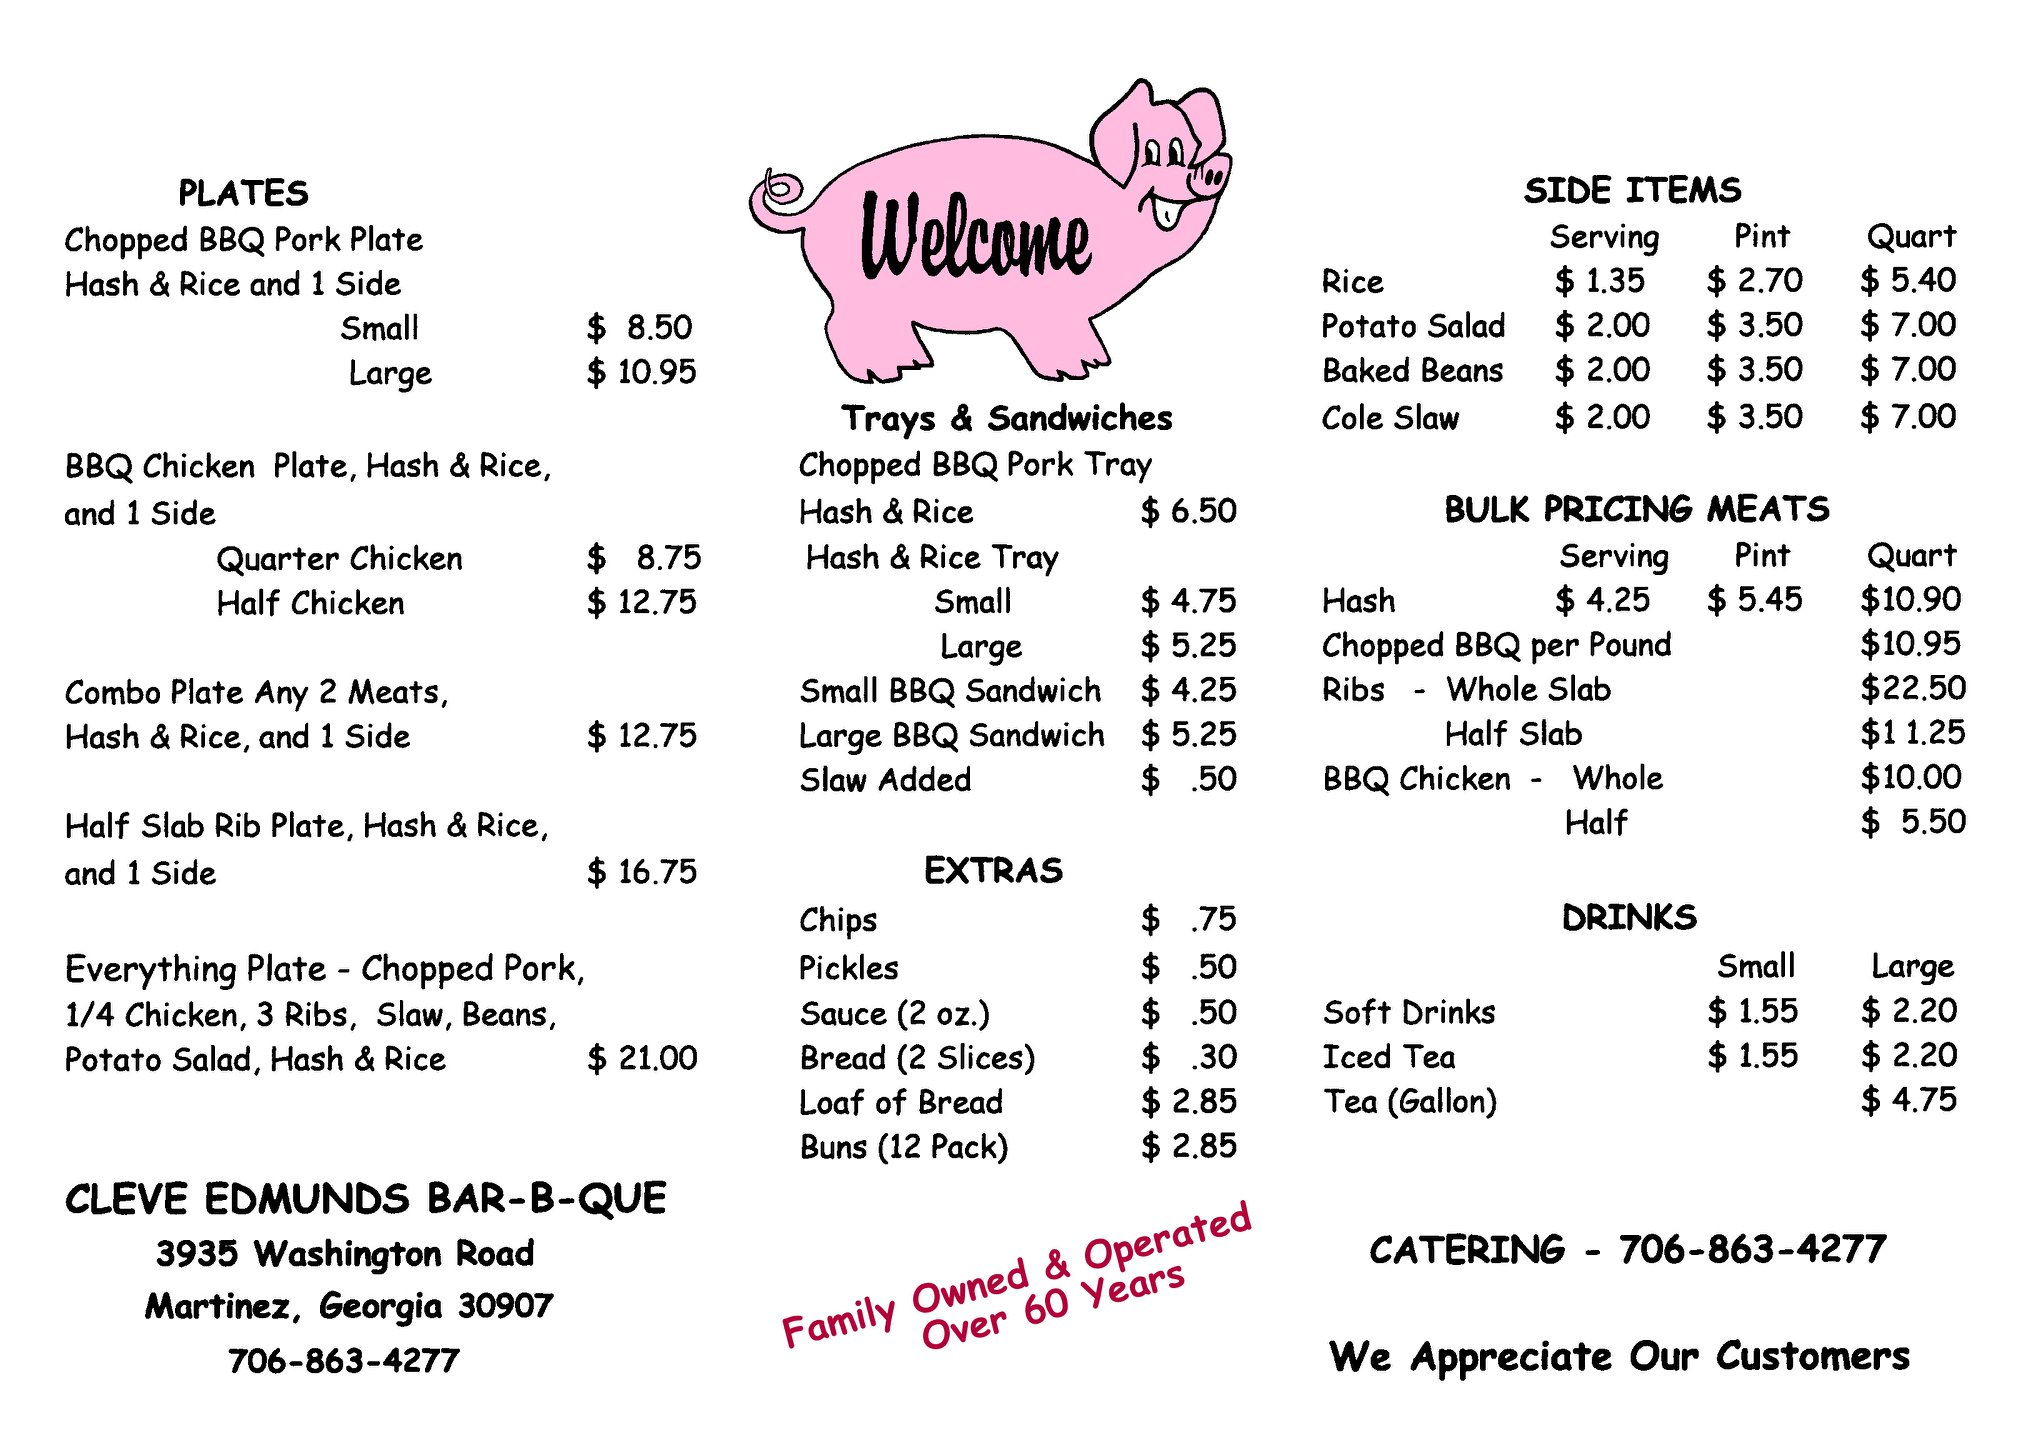 PLATES
Chopped BBQ Pork Plate
Hash & Rice and 1 Side
Small $ 8.50
Large $ 10.95
BBQ Chicken Plate, Hash & Rice,
and 1 Side
Quarter Chicken $ 8.75
Half Chicken $ 12.75
Combo Plate Any 2 Meats,
Hash & Rice, and 1 Side $ 12.75
Half Slab Rib Plate, Hash & Rice,
and 1 Side $ 16.75
Everything Plate - Chopped Pork,
1/4 Chicken, 3 Ribs, Slaw, Beans,
Potato Salad, Hash & Rice $ 21.00
CLEVE EDMUNDS BAR-B-QUE
3935 Washington Road
Martinez, Georgia 30907
706-863-4277
Welcome
Trays & Sandwiches
Chopped BBQ Pork Tray
Hash & Rice $ 6.50
Hash & Rice Tray
Small $ 4.75
Large $ 5.25
Small BBQ Sandwich $ 4.25
Large BBQ Sandwich $ 5.25
Slaw Added $ .50
EXTRAS
Chips $ .75
Pickles $ .50
Sauce (2 oz.) $ .50
Bread (2 Slices) $ .30
Loaf of Bread $ 2.85
Buns (12 Pack) $ 2.85
Family Owned & Operated
Over 60 Years
SIDE ITEMS
Serving Pint Quart
Rice $ 1.35 $ 2.70 $ 5.40
Potato Salad $ 2.00 $ 3.50 $ 7.00
Baked Beans $ 2.00 $ 3.50 $ 7.00
Cole Slaw $ 2.00 $ 3.50 $ 7.00
BULK PRICING MEATS
Serving Pint Quart
Hash $ 4.25 $ 5.45 $10.90
Chopped BBQ per Pound $10.95
Ribs - Whole Slab $22.50
Half Slab $1 1.25
BBQ Chicken - Whole $10.00
Half $ 5.50
DRINKS
Small Large
Soft Drinks $ 1.55 $ 2.20
Iced Tea $ 1.55 $ 2.20
Tea (Gallon) $ 4.75
CATERING - 706-863-4277
We Appreciate Our Customers